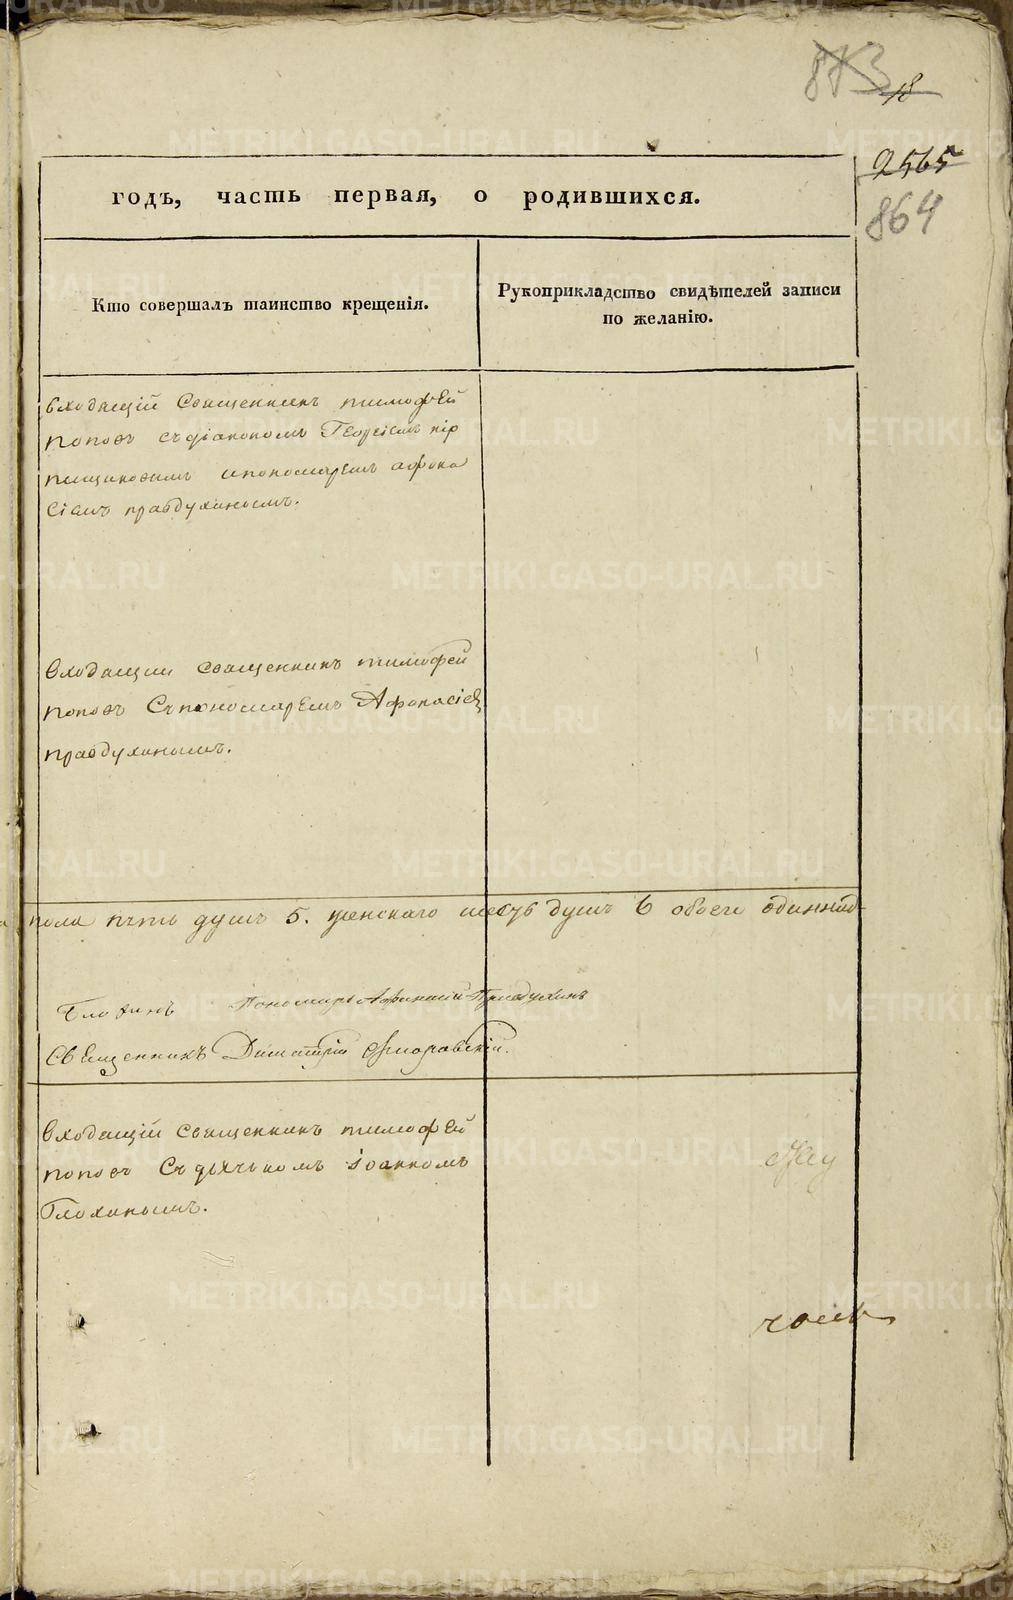 873
18
2565
864
годъ, часть первая, о родившихся.
Кто совершалъ таинство крещенія.
Рукоприкладство свидѣтелей записи
по желанію.
входящій священникъ тимофей
поповъ съ діакономъ Георгіемъ кір
пищиковымъ ипономаремъ афона
сіемъ правдухинымъ.
входящии священникъ тимофей
поповъ Съпономаремъ Афонасіем
правдухинымъ.
пола пять душъ 5. женскаго шесть душъ 6 обоего одиннад
Глохинъ Пономарь Афанасій Правдухинъ
Священникъ Димитрій Флоровскій.
входящій священникъ тимофей
поповъ Съ дьячкомъ іоанномъ
Глохинымъ.
METRIKI.GASO-URAL.RU